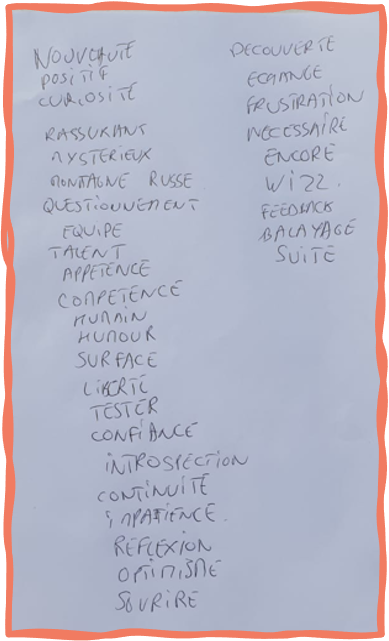 NOUVEAUTÉ
POSITIF
CURIOSITÉ
RASSURANT
MYSTERIEUX
MONTAGNE RUSSE
QUESTIONNEMENT
EQUIPE
TALENT
APPÉTENCE
COMPETENCE
HUMAIN
HUMOUR
SURFACE
LIBERTÉ
TESTER
CONFIANCE
INTROSPECTION
CONTINUITÉ
IMPATIENCE.
REFLEXION
OPTIMISME
SOURIRE
DECOUVERTE
ECHANGE
FRUSTRATION
NECESSAIRE
ENCORE
WIZZ.
FEEDBACK
BALAYAGE
SUITE